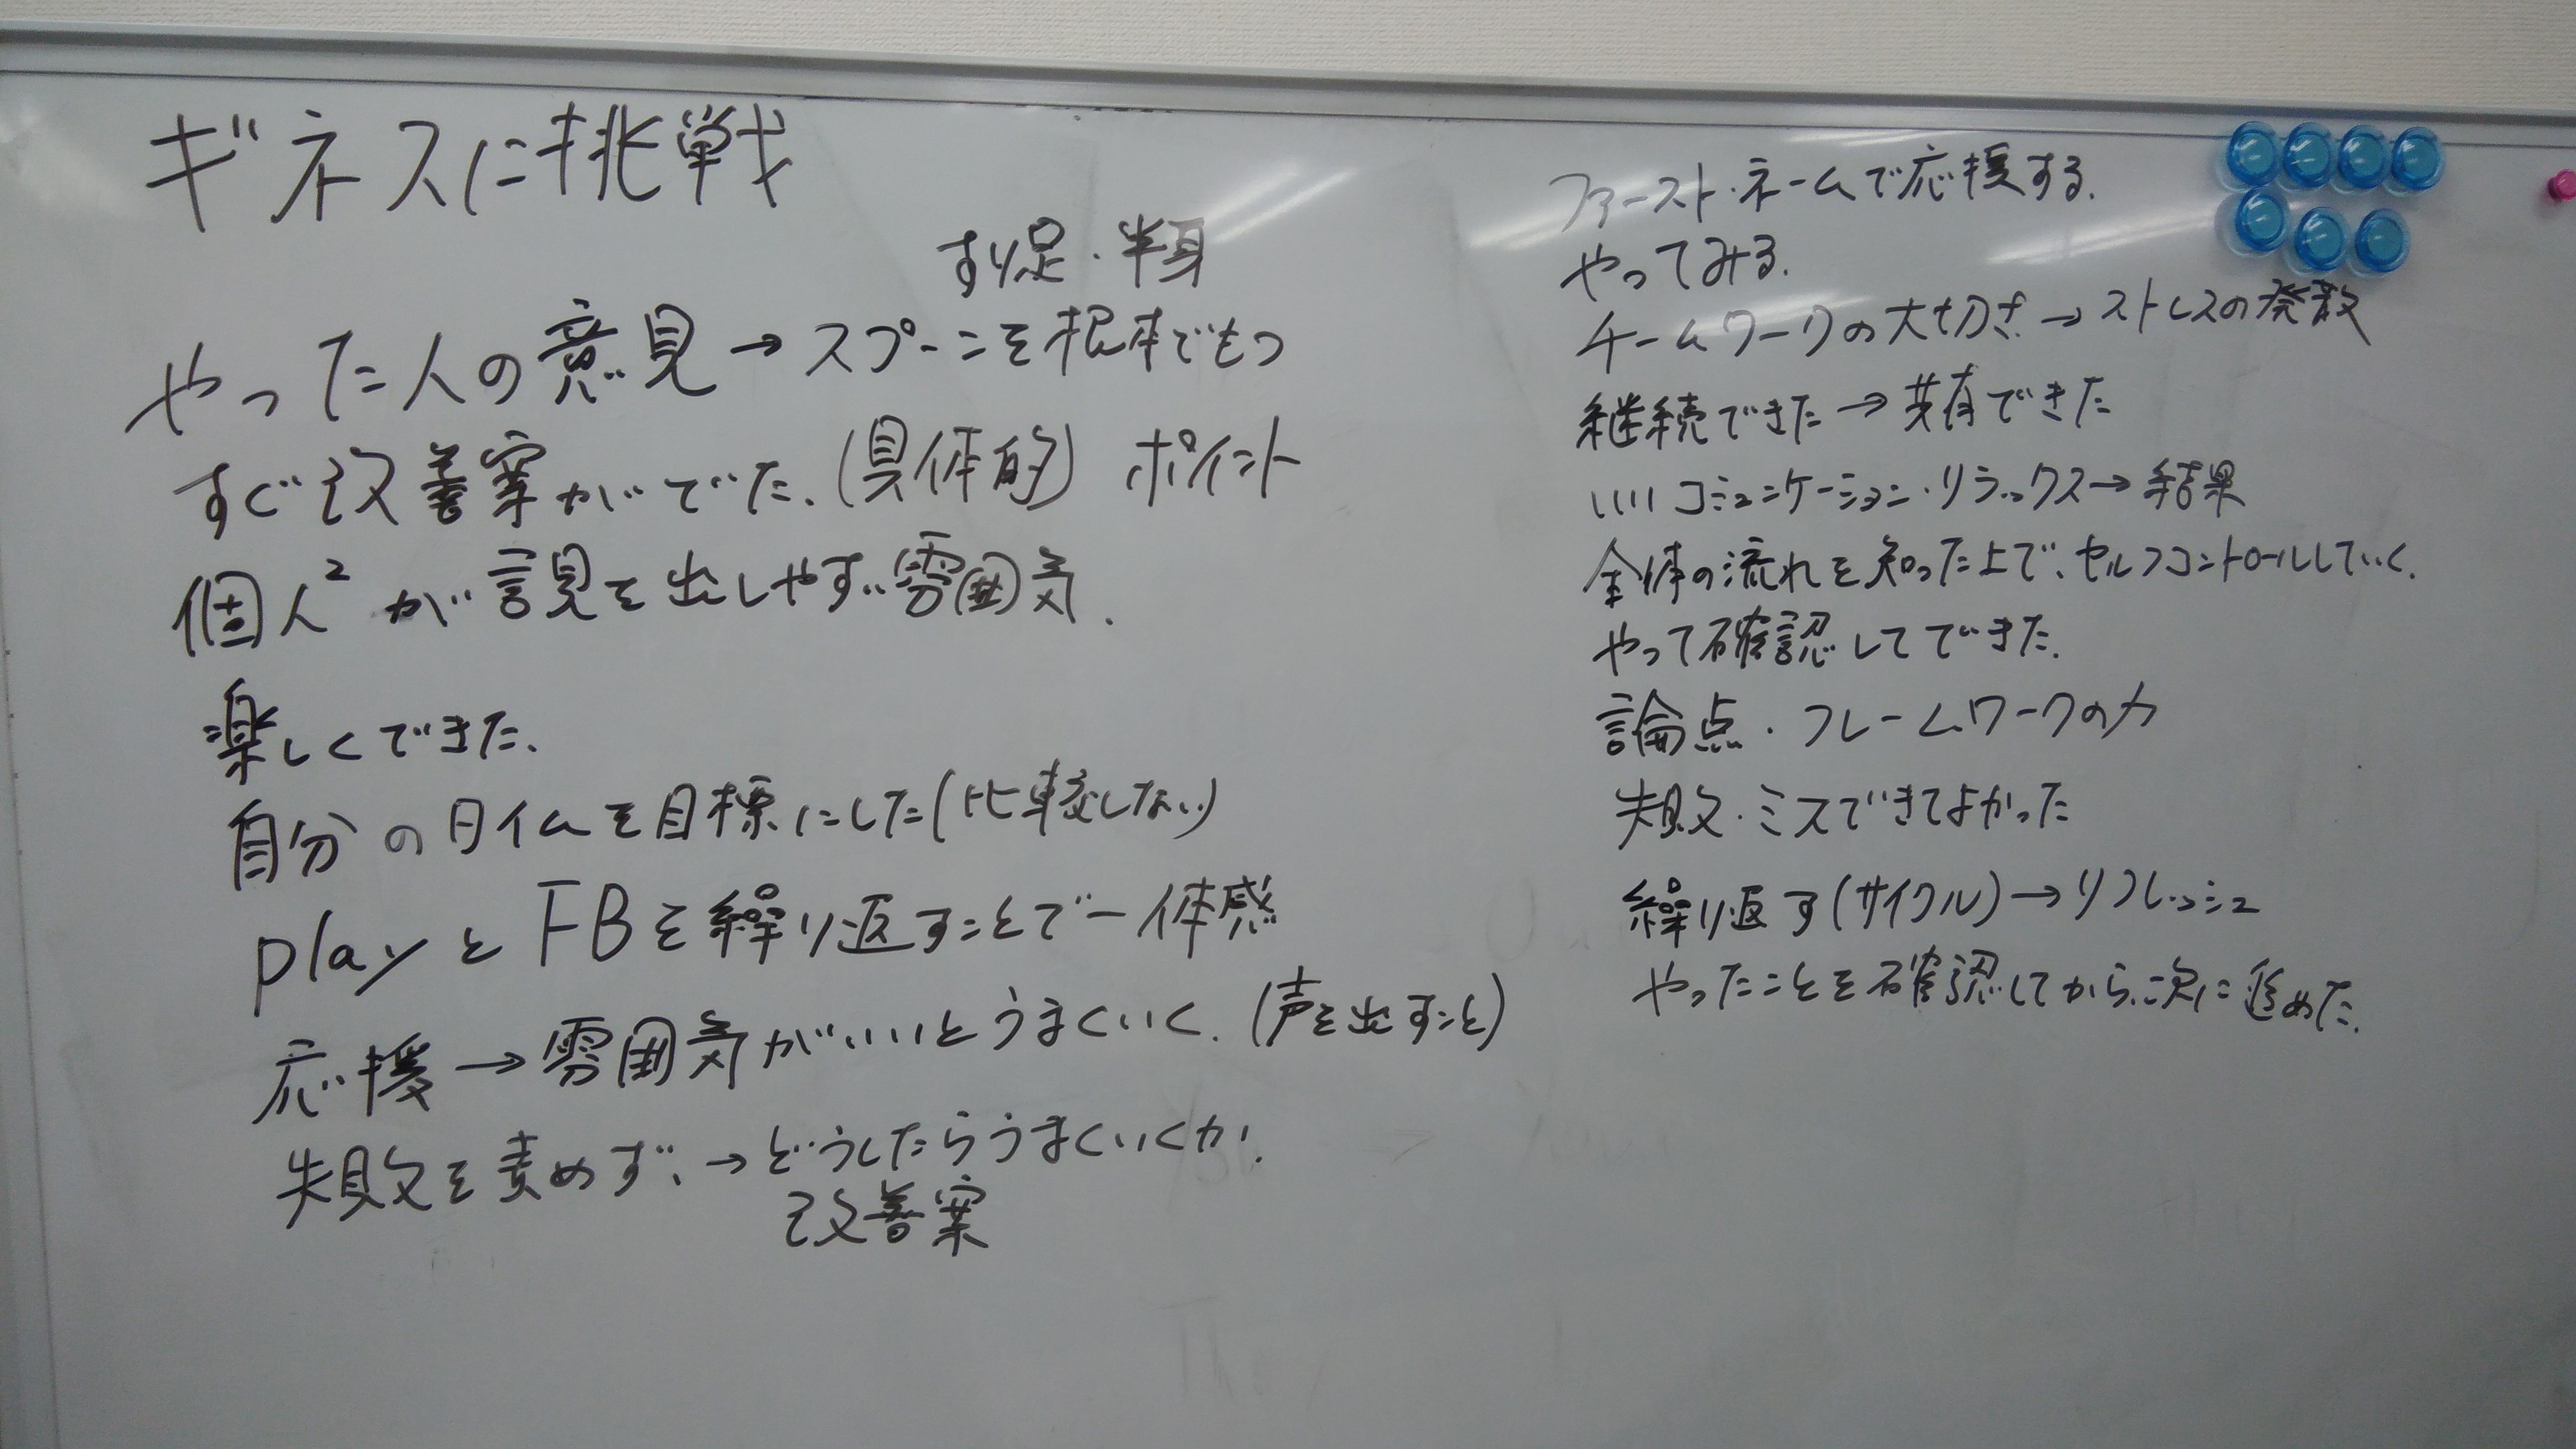 ギネスに挑戦
すり足・半身
やった人の意見→スプーンを根本でもつ
すぐ改善案がでた.(具体的) ポイント
個人²が意見を出しやすい雰囲気.
楽しくできた.
自分のタイムを目標にした(比較しない)
playとFBを繰り返すことで一体感
応援→雰囲気がいいとうまくいく.(声を出すこと)
失敗を責めず、→どうしたらうまくいくか.
改善案
ファースト・ネームで応援する.
やってみる.
チームワークの大切さ→ストレスの発散
継続できた→共有できた
いいコミュニケーション・リラックス→結果
全体の流れを知った上で、セルフコントロールしていく.
やって確認してできた.
論点・フレームワークの力
失敗・ミスできてよかった
繰り返す(サイクル)→リフレッシュ
やったことを確認してから、次に進めた.